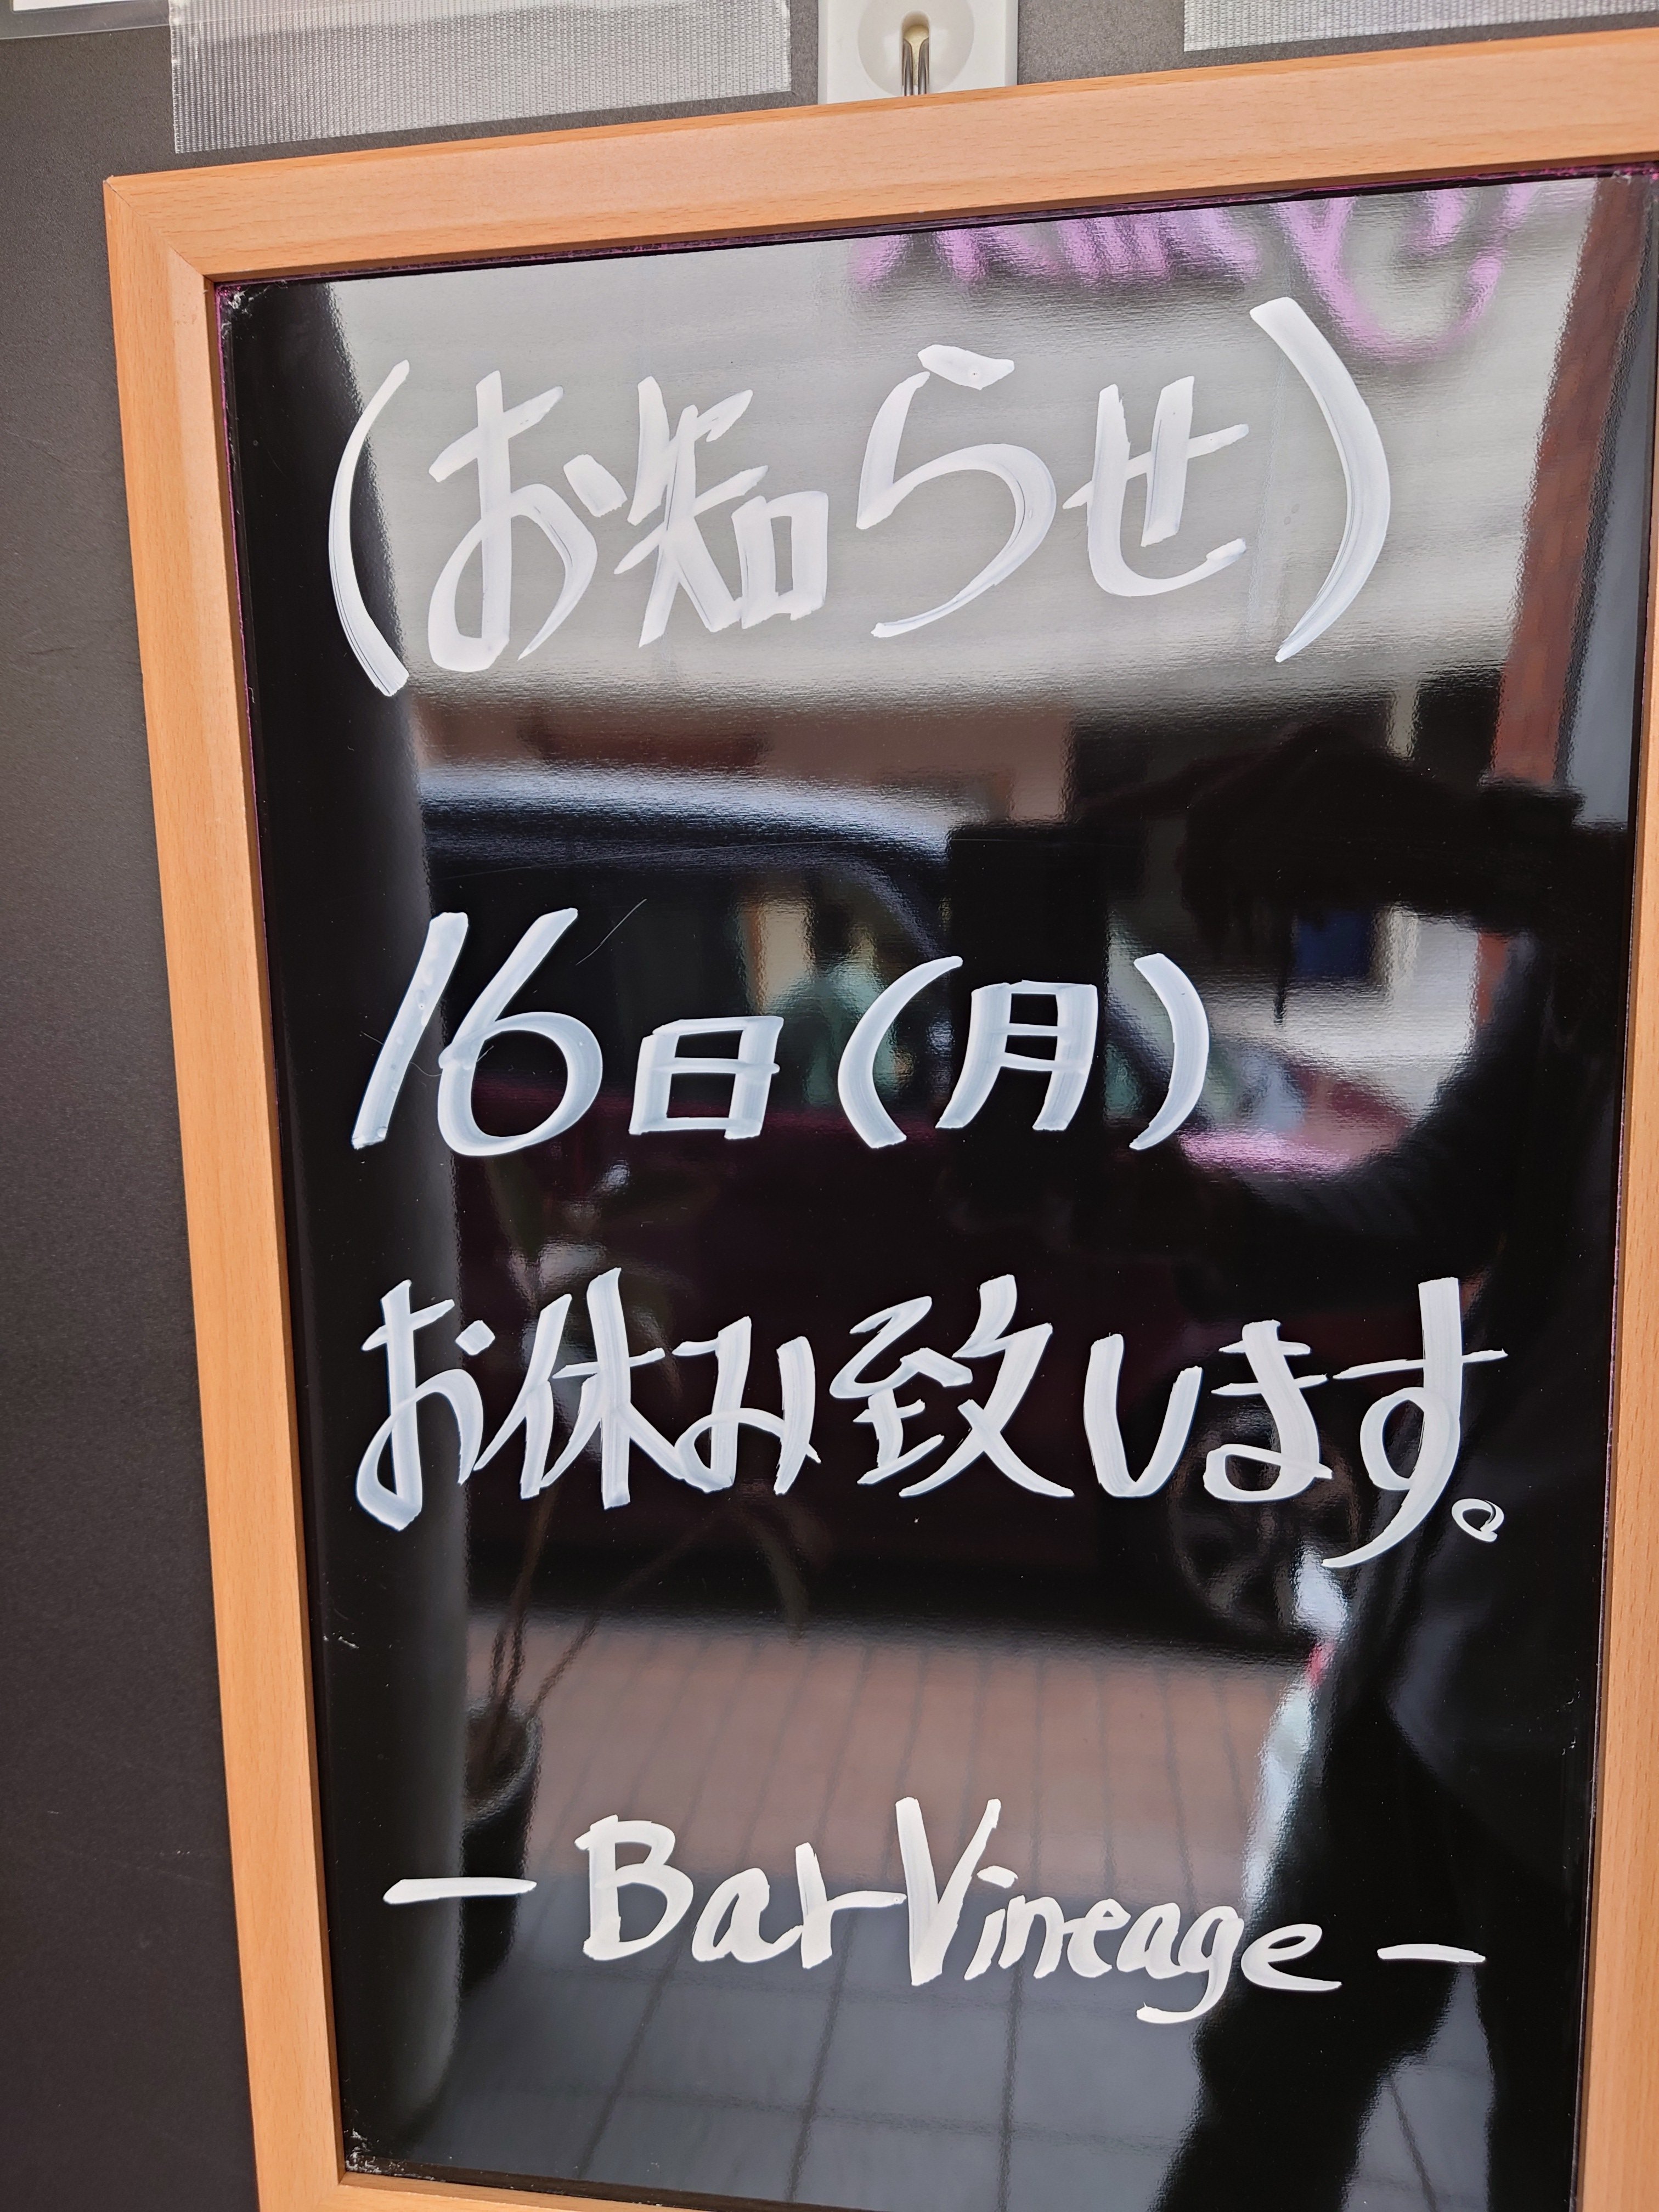 (お知らせ)
16日(月)
お休み致します。
— Bar Vineage —